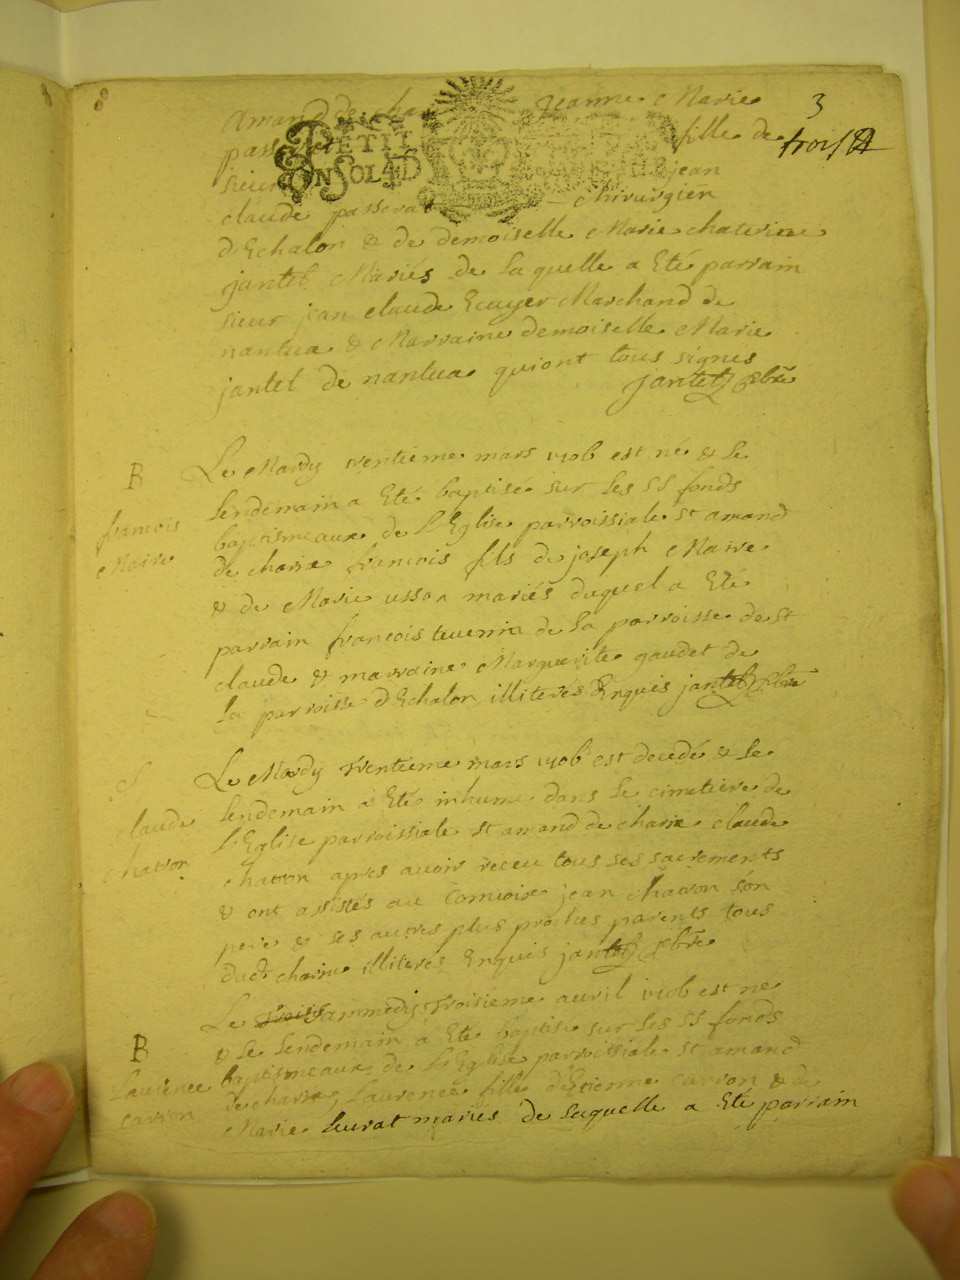 3
trois
amand de chari Jeanne Marie
pass fille de
PETIT
UN SOL 4 D
sieur jean
claude passerat chirurgien
d'Echalon & de demoiselle Marie chaterine
jantet Mariés de laquelle a Eté parrain
sieur jean claude Ecuyer Marchand de
nantua & Marraine demoiselle Marie
jantet de nantua qui ont tous signés
jantet pbre
B
francois
Maire
Le Mardy trentieme mars 1706 est né & le
lendemain a Eté baptisé sur les SS fonds
baptismeaux de l'Eglise parroissiale st amand
de charix francois fils de joseph Maire
& de Marie usson mariés duquel a Eté
parrain francois de la parroisse de st
claude & marraine Marguerite gaudet de
la parroisse d'Echalon illiterés Enquis jantet pbre
S
claude
chatron
Le Mardy trentieme mars 1706 est decedé & le
lendemain a Eté inhumé dans le cimetiere de
l'Eglise parroissiale st amand de charix claude
chatron apres avoir receu tous ses sacrements
& ont assistés au convoir jean chatron son
pere & ses autres plus proches parents tous
dudt charix illiterés Enquis jantet pbre
B
Laurence
carron
Le sammedy troisieme avril 1706 est né
& le lendemain a Eté baptisé sur les SS fonds
baptismeaux de l'Eglise parroissiale st amand
de charix, Laurence fille d'Etienne carron & de
Marie Levrat mariés de laquelle a Eté parrain